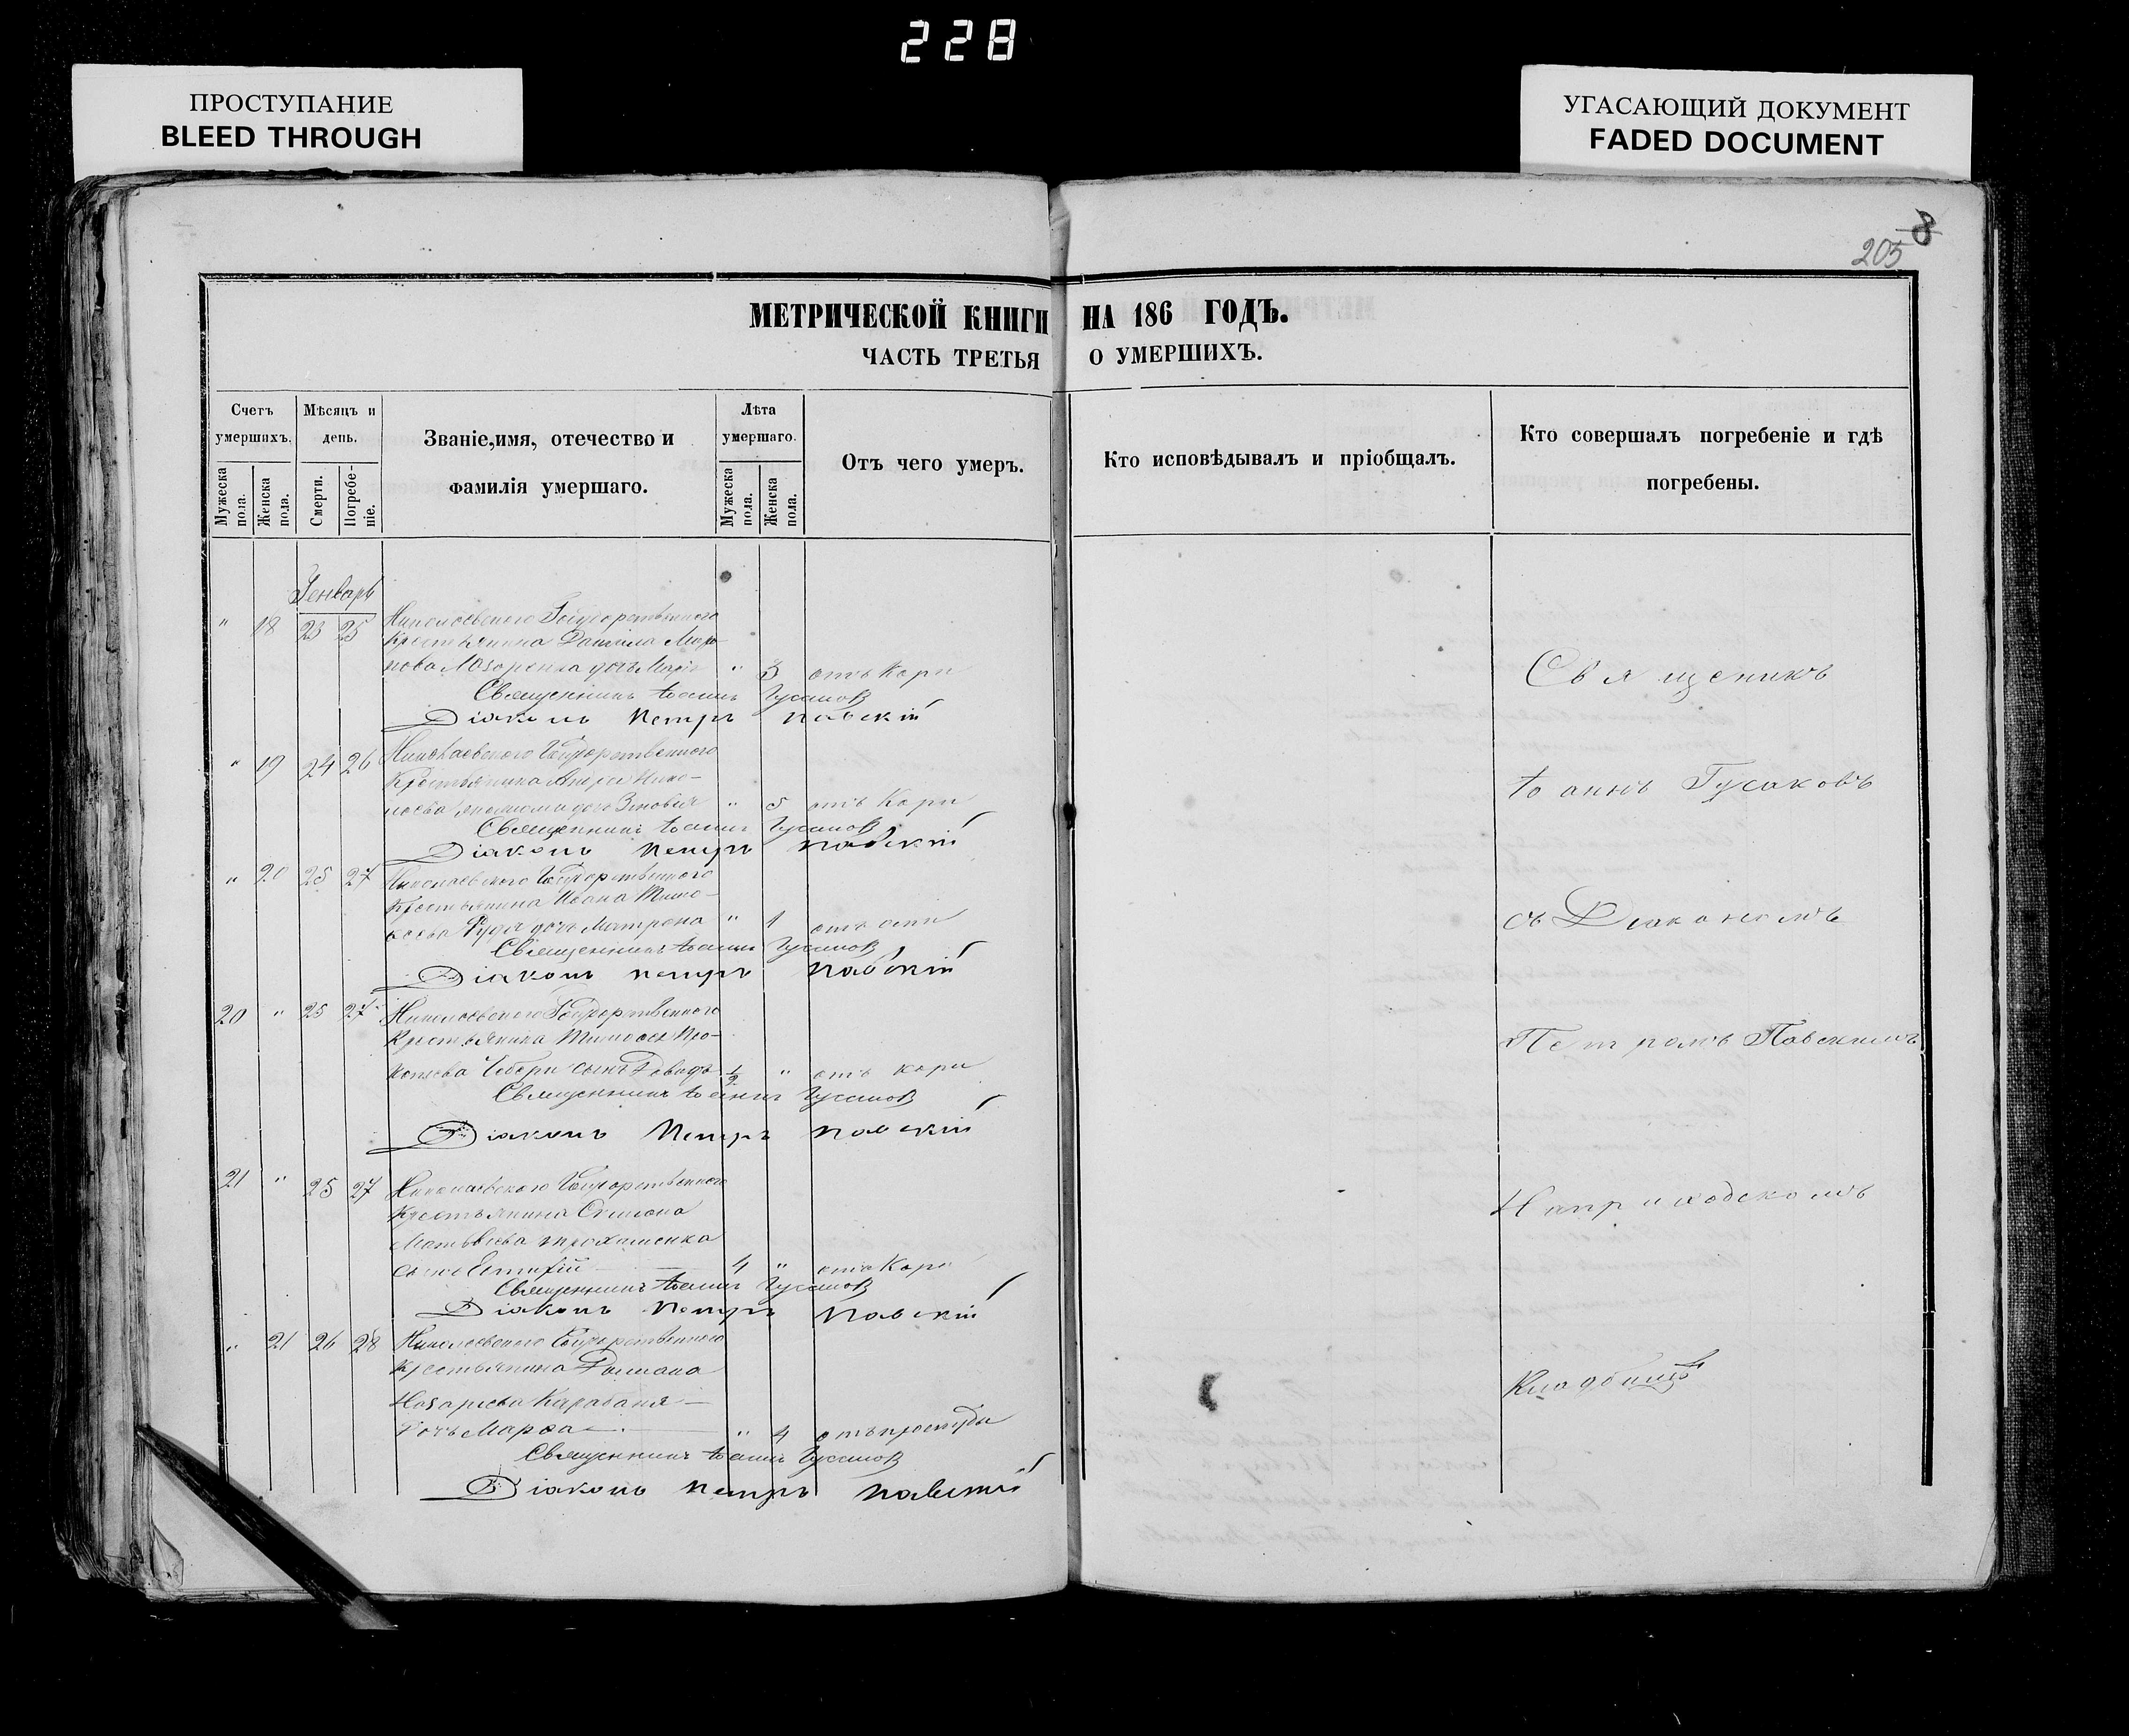 228
ПРОСТУПАНИЕ
BLEED THROUGH
УГАСАЮЩИЙ ДОКУМЕНТ
FADED DOCUMENT
8
205
МЕТРИЧЕСКОЙ КНИГИ НА 186 ГОДЪ.
ЧАСТЬ ТРЕТЬЯ О УМЕРШИХЪ.
Счетъ умершихъ.
Мужеска пола.
Женска пола.
Мѣсяцъ и день.
Смерти.
Погребеніе.
Званіе, имя, отечество и фамилія умершаго.
Лѣта умершаго.
Мужеска пола.
Женска пола.
Отъ чего умеръ.
Кто исповѣдывалъ и пріобщалъ.
Кто совершалъ погребеніе и гдѣ погребены.
Генварь
" 18 23 25 Николаевского Государственного
Крестьянина Данила Миро-
нова Назаренка дочь " 3 отъ Кори
Священникъ Іоаннъ Гусаковъ
Діаконъ Петръ Павскій
" 19 24 26 Николаевского Государственного
Крестьянина Андрея Нико-
лаева дочь Зиновія " 5 отъ Кори
Священникъ Іоаннъ Гусаковъ
Діаконъ Петръ Павскій
" 20 25 27 Николаевского Государственного
Крестьянина Ивана Тимо-
ѳеева Руда дочь Матрона " 1 отъ оспи
Священникъ Іоаннъ Гусаковъ
Діаконъ Петръ Павскій
20 " 25 27 Николаевского Государственного
Крестьянина Тимоѳея Про-
копіева сынъ Давидъ 1/2 " отъ кори
Священникъ Іоаннъ Гусаковъ
Діаконъ Петръ Павскій
21 " 25 27 Николаевского Государственного
Крестьянина Симона
Матвѣева Трохименка
сынъ 4 " отъ Кори
Священникъ Іоаннъ Гусаковъ
Діаконъ Петръ Павскій
" 21 26 28 Николаевского Государственного
Крестьянина
Назаріева Карабаня
дочь Марѳа " 4 отъ простуды
Священникъ Іоаннъ Гусаковъ
Діаконъ Петръ Павскій
Священикъ
Іоаннъ Гусаковъ
съ Діакономъ
Петромъ Павскимъ
На приходскомъ
Кладбищѣ